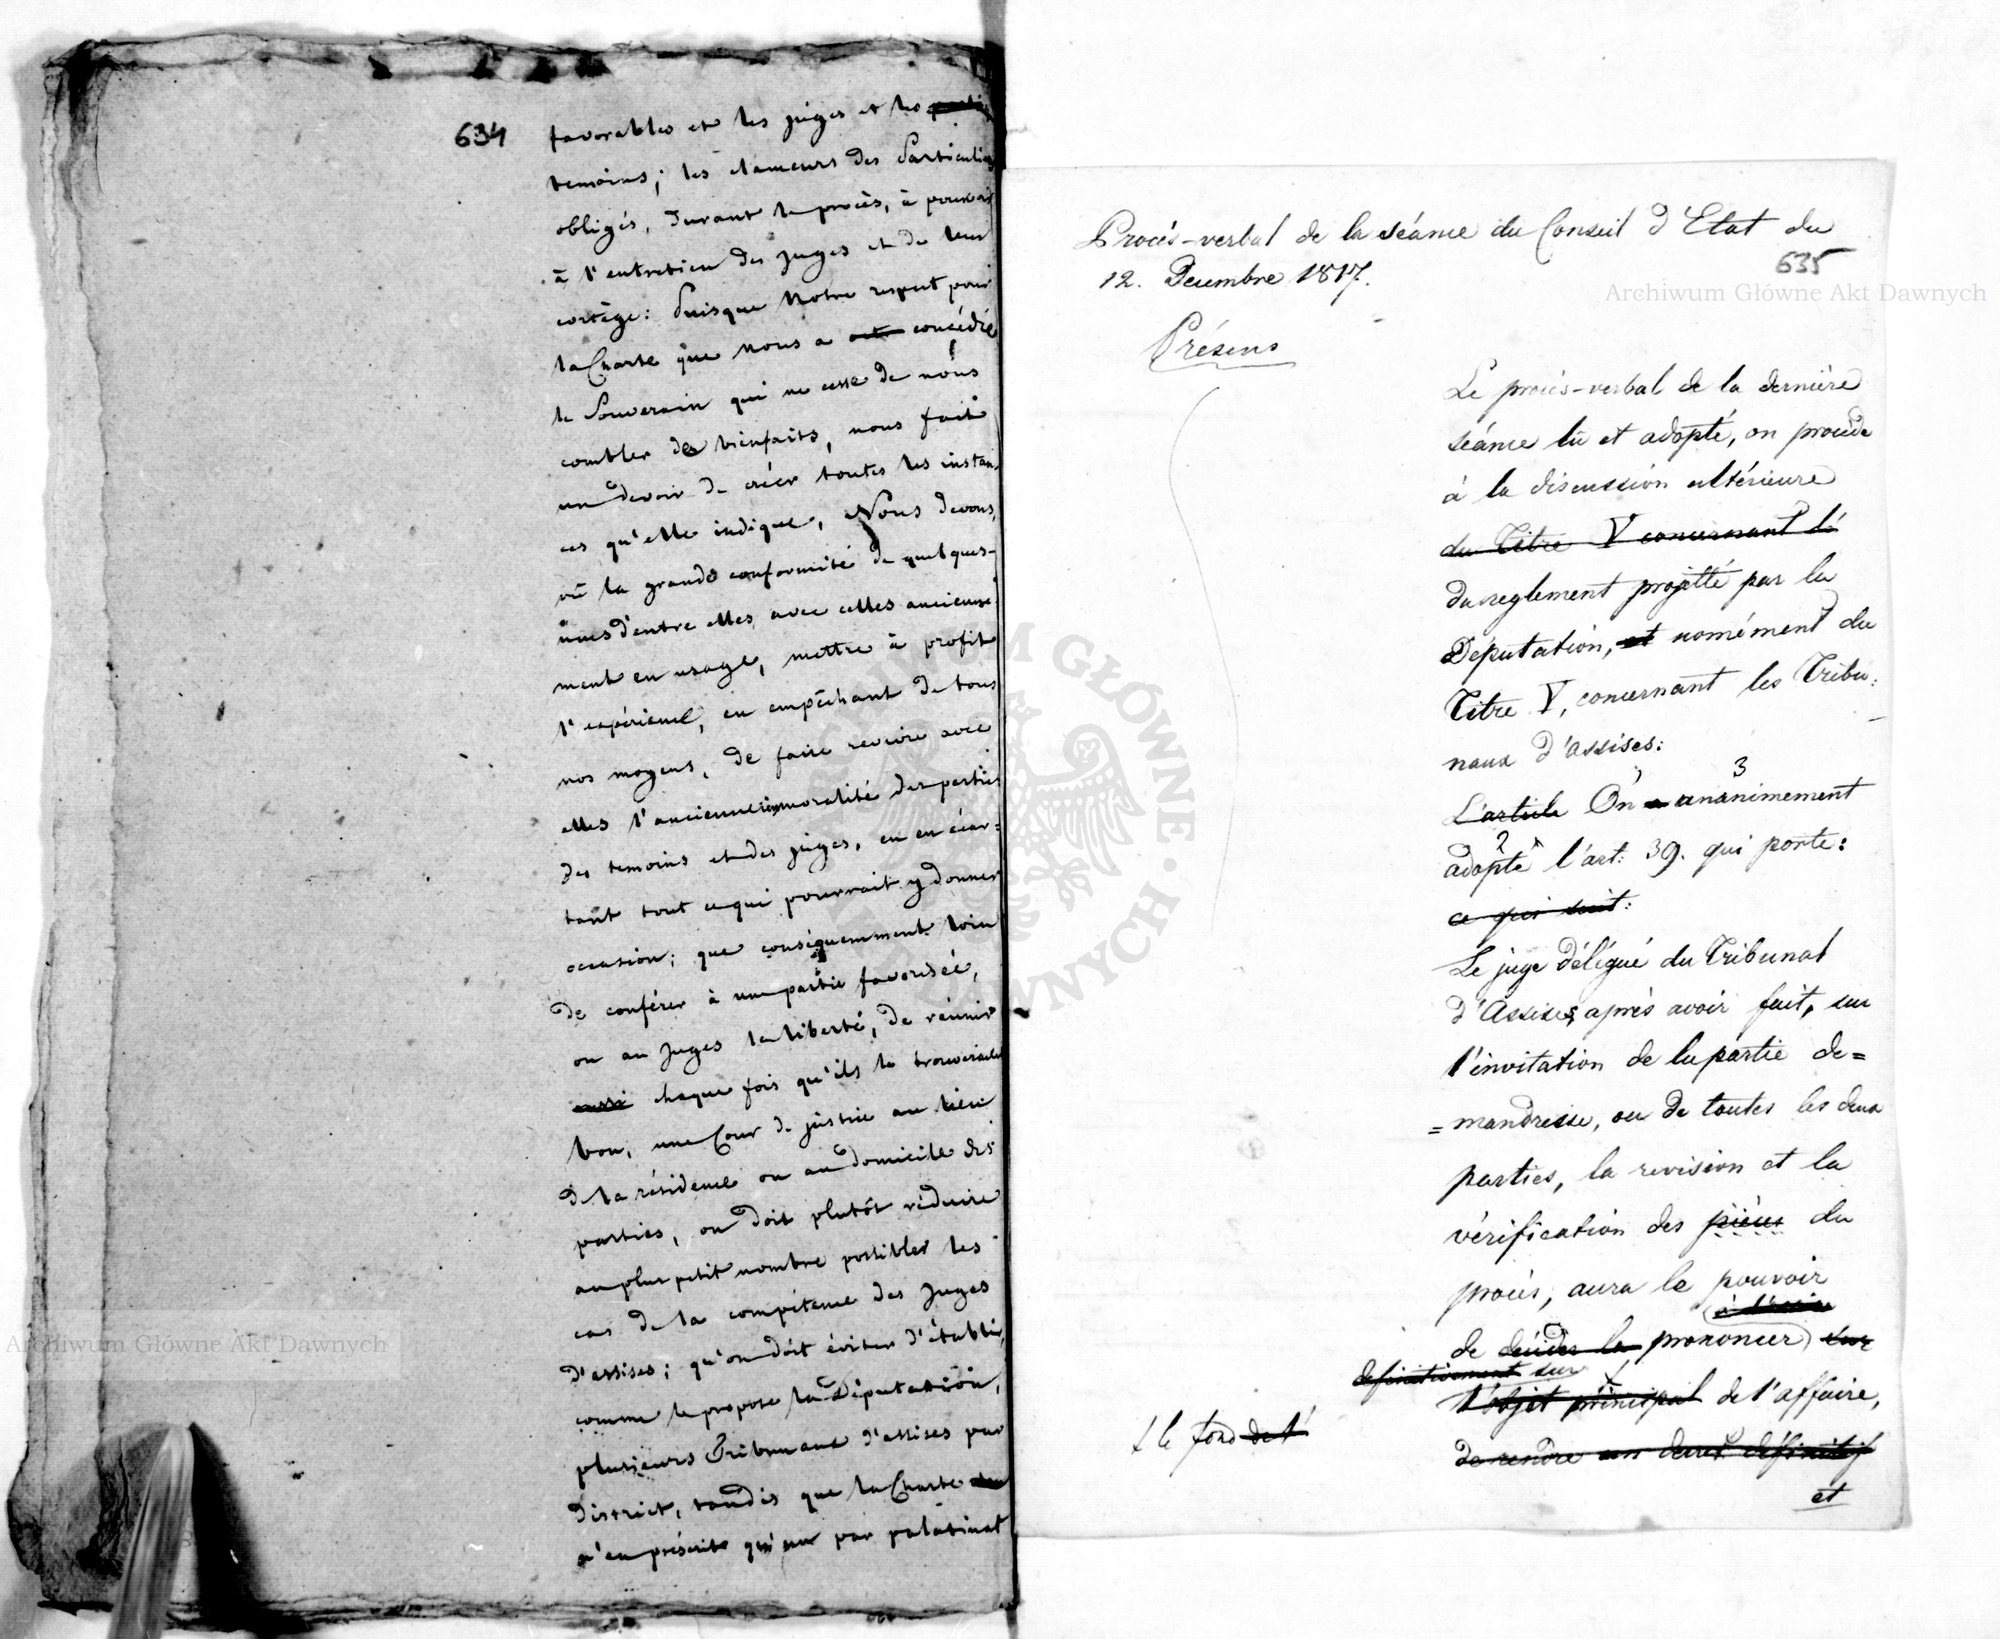 634
favorables et les juges et les
temoins; les clameurs des Particuliers
obligés, durant le procès, à pourvoir
à l'entretien des juges et de leur
cortège: Puisque Notre respect pour
la Charte que nous a concédée
le Souverain qui ne cesse de nous
combler de bienfaits, nous fait
un devoir de créer toutes les instan-
ces qu'elle indique, Nous devons,
vû la grande conformité de quelques-
unes d'entre elles avec celles ancienne-
ment en usage, mettre à profit
l'expérience, en empêchant de tous
nos moyens, de faire revivre avec
elles l'ancienne immoralité des parties
des temoins et des juges, en en écar=
tant tout ce qui pourrait y donner
occasion; que conséquemment loin
de conférer à une partie favorisée,
ou au juges la liberté, de réunir
aussi chaque fois qu'ils le trouveraient
bon, une Cour de justice au lieu
de la résidence ou au domicile des
parties, on doit plutôt réduire
au plus petit nombre possible les
cas de la compétence des Juges
d'assises; qu'on doit éviter d'établir,
comme le propose la Députation,
plusieurs Tribunaux d'assises par
District, tandis que la Charte
n'en préscrit qu'un par palatinat
Procés-verbal de la séance du Conseil d'Etat du
635
12. Decembre 1817.
Archiwum Główne Akt Dawnych
Présens
Le procés-verbal de la dernière
séance lu et adopté, on procède
à la discussion ultérieure
du Titre V concernant l'
du reglement projetté par la
Députation, et nomément du
Titre V, concernant les Tribu:
naux d'assises:
3
L'article On a unanimement
2
adopté l'art: 39. qui porte:
ce qui suit:
Le juge délégué du Tribunal
d'Assises, après avoir fait, sur
l'invitation de la partie de=
=mandresse, ou de toutes les deux
parties, la revision et la
vérification des pièces du
procés, aura le pouvoir
de décider le prononcer sur
definitivement sur
l'objet principal de l'affaire,
le fond de l'
de rendre un decret définitif
et
Archiwum Główne Akt Dawnych
ARCHIWUM GŁÓWNE · AKT DAWNYCH ·